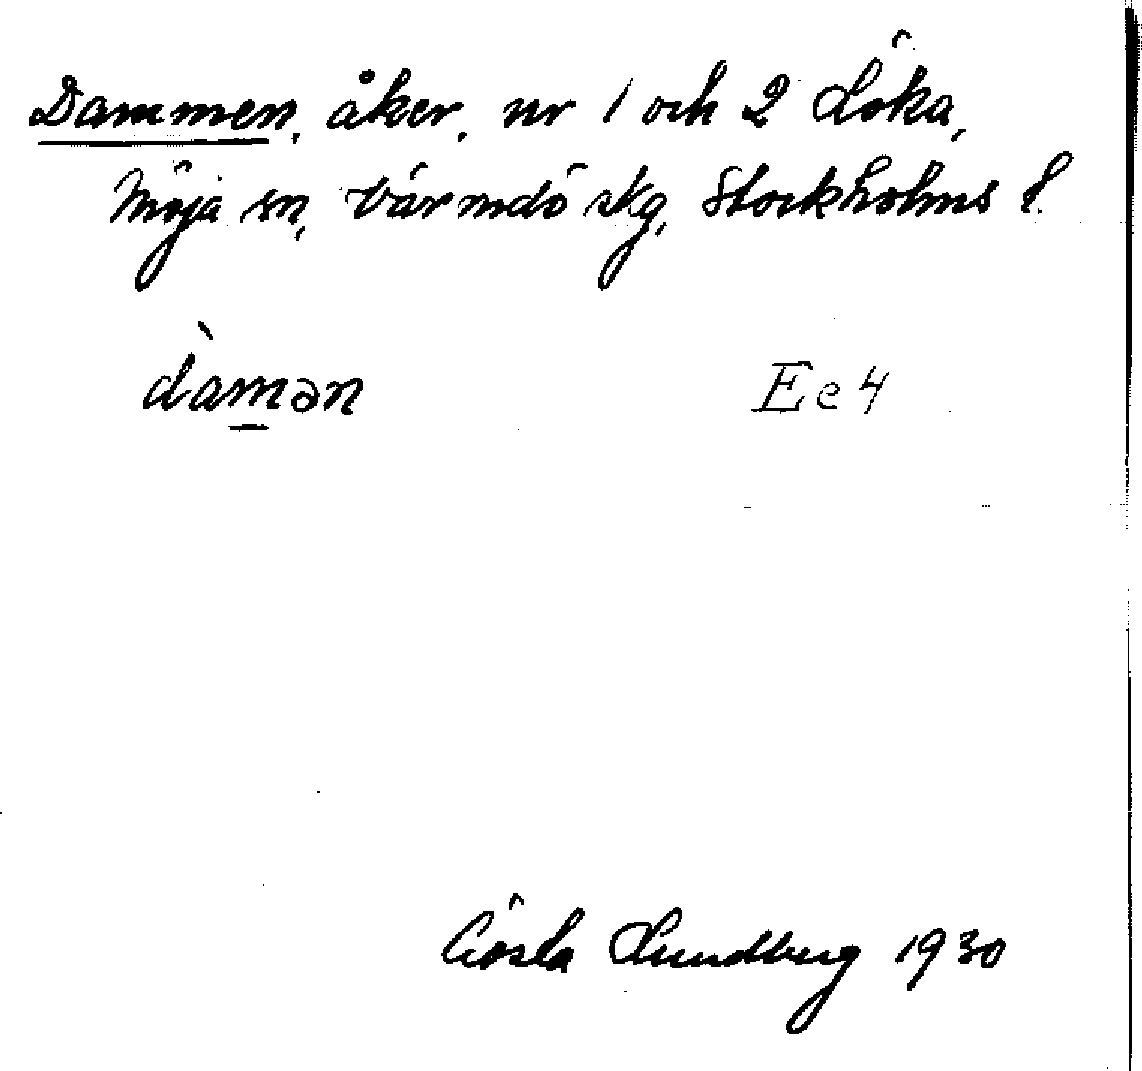 Dammen, åker, nr 1 och 2 Löka,
Möja sn, Värmdö skg, Stockholms l.
dàmən Ee4
Gösta Lundberg 1930